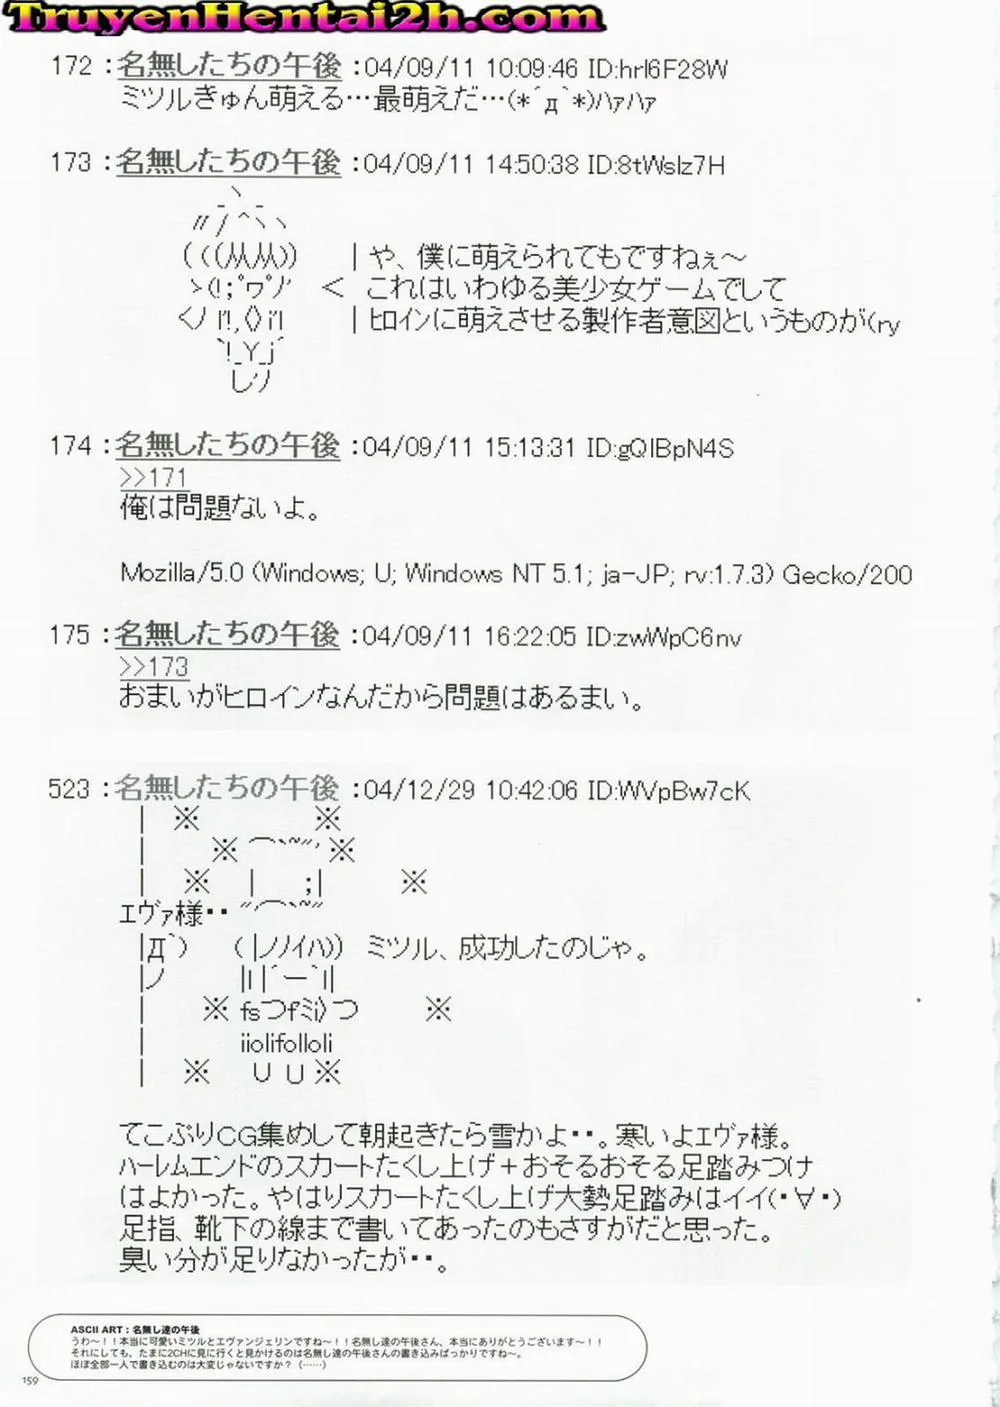 TruyenHentai2h.com
172 ：名無したちの午後 ：04/09/11 10:09:46 ID:hrl6F28W
ミツルきゅん萌える…最萌えだ…(*´д｀*)ﾊｧﾊｧ
173 ：名無したちの午後 ：04/09/11 14:50:38 ID:8tWslz7H
| や、僕に萌えられてもですねぇ～
＜ これはいわゆる美少女ゲームでして
| ﾋﾛｲﾝに萌えさせる製作者意図というものが(ry
174 ：名無したちの午後 ：04/09/11 15:13:31 ID:gQIBpN4S
>>171
俺は問題ないよ。
Mozilla/5.0 (Windows; U; Windows NT 5.1; ja-JP; rv:1.7.3) Gecko/200
175 ：名無したちの午後 ：04/09/11 16:22:05 ID:zwWpC6nv
>>173
おまいがヒロインなんだから問題はあるまい。
523 ：名無したちの午後 ：04/12/29 10:42:06 ID:WVpBw7cK
| ※ ※
| ※ ※
| ※ | ;| ※
ｴヴｧ様・・
|Д`) ( |ノノイハ)) ミツル、成功したのじゃ。
|ノ ||｜´ー｀||
| ※ fsつfミi)つ ※
| iiolifolloli
| ※ ∪ ∪ ※
てこぶりCG集めして朝起きたら雪かよ・・。寒いよｴヴｧ様。
ﾊｰﾚﾑエンドのスカートたくし上げ＋おそるおそる足踏みつけ
はよかった。やはりスカートたくし上げ大勢足踏みはイイ(・∀・)
足指、靴下の線まで書いてあったのもさすがだと思った。
臭い分が足りなかったが・・。
ASCII ART：名無し達の午後
うわ～！！本当に可愛いミツルとエヴァンジェリンですね～！！名無し達の午後さん、本当にありがとうございます～！！
それにしても、たまに2CHに見に行くと見かけるのは名無し達の午後さんの書き込みばっかりですね～。
ほぼ全部一人で書き込むのは大変じゃないですか？（……）
159